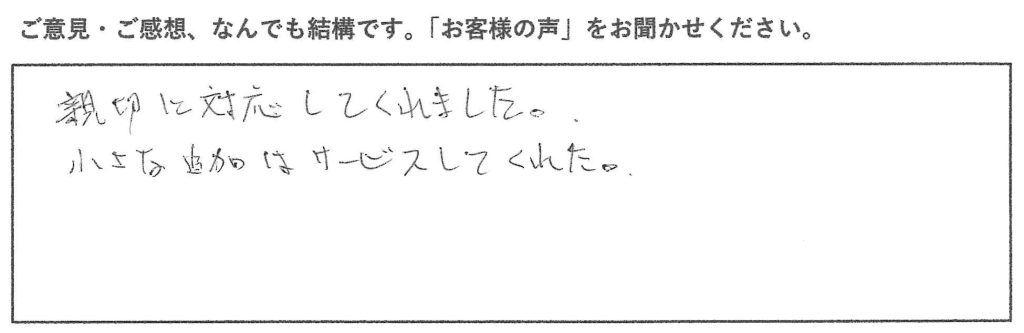 ご意見・ご感想、なんでも結構です。「お客様の声」をお聞かせください。
親切に対応してくれました。
小さな追加はサービスしてくれた。